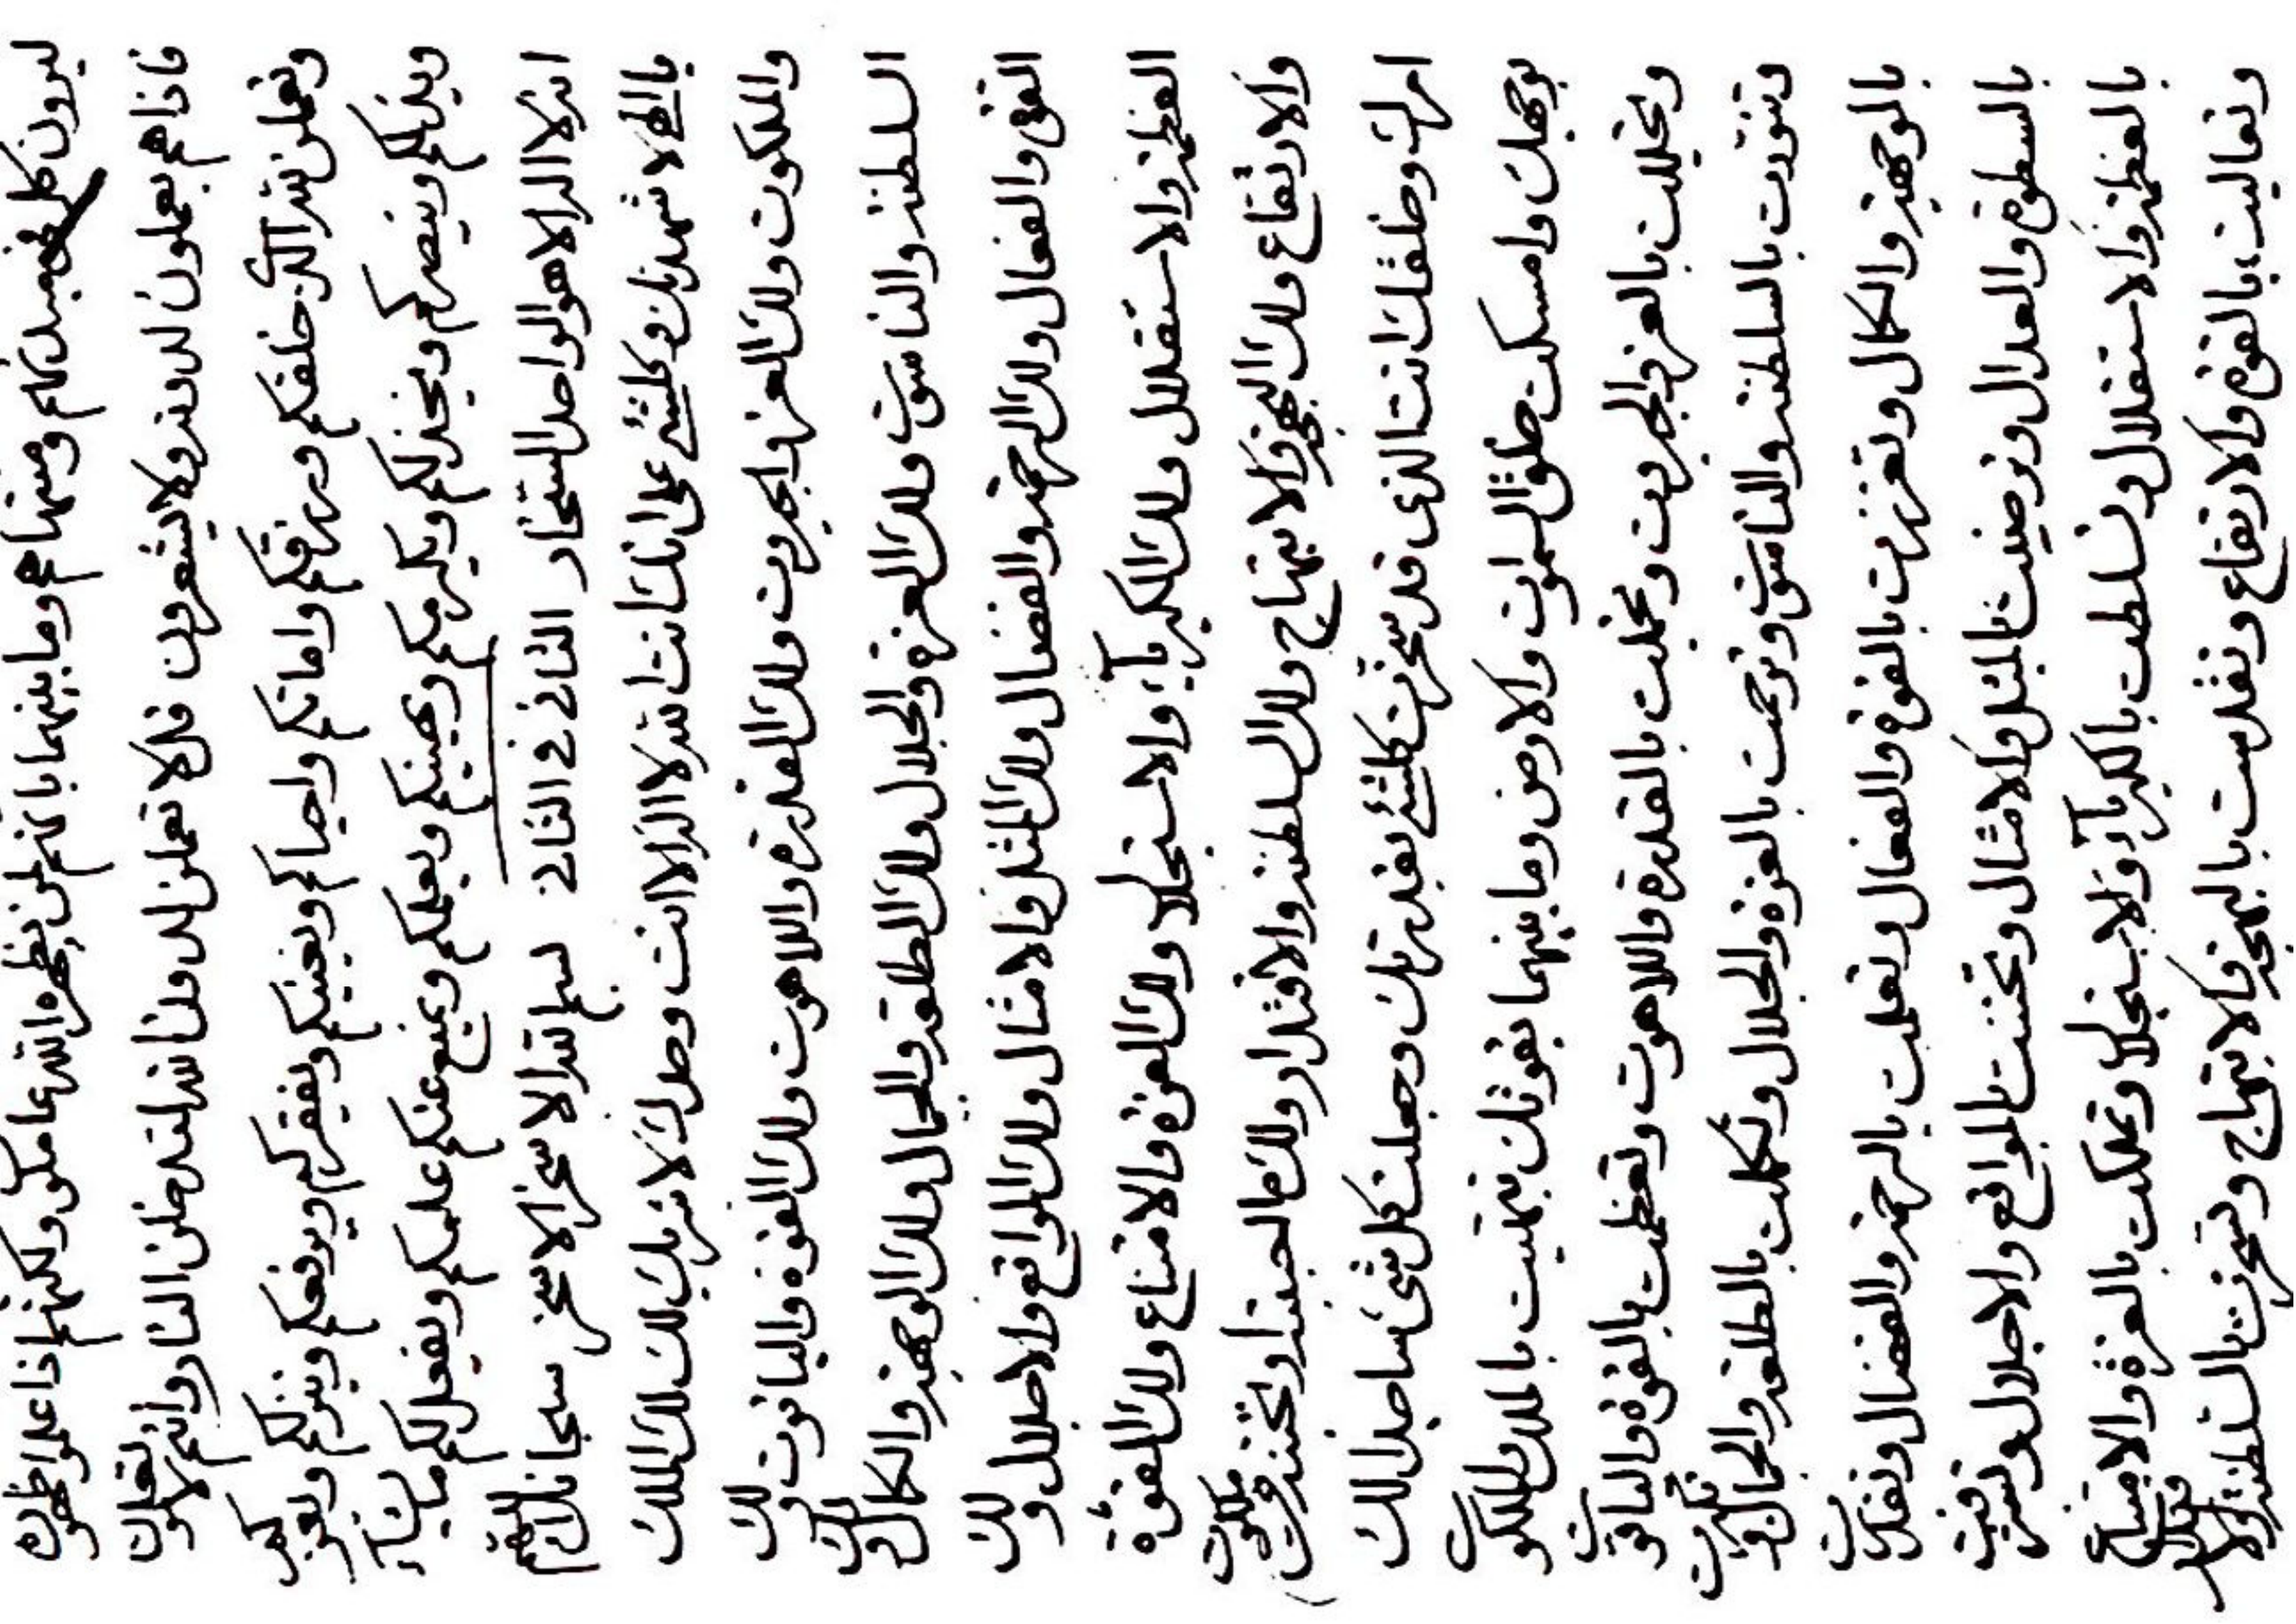 فاذا هم يعملون لدونه ولا يشعرون فلا تعملن لله ولتدخلن النار وانتم لا تعلمون
وتعملن لله الذي خلقكم ورزقكم واماتكم واحياكم ويغنيكم ويفقركم ويرفعكم وينزلكم ويعزكم
ويذلكم وينصركم ويخذلكم ويكرمكم ويهينكم ويعلمكم ويمنع عنكم علمكم ويفعل لكم ما يشآء
انه لا اله الا هو الواحد الستخار الثاني في الثاني بسم الله الاسخر الاسخر سبحانك اللهم
يا الهي لاشهدنك وكلشيء على انك انت الله لا اله الا انت وحدك لا شريك لك لك الملك
والملكوت ولك العز والجبروت ولك القدرة واللاهوت ولك القوة والياقوت ولك
السلطنه والناسوت ولك العزة والجلال ولك الطلعه والجمال ولك الوجهه والكمال ولك
القوة والفعال ولك الرحمه والفضال ولك المثل والامثال ولك المواقع والاجلال ولك
العظمه والاستقلال ولك الكبريآء والاستجلال ولك العزة والامتناع ولك القوة
والارتفاع ولك البهجه والابتهاج ولك السلطنه والاقتدار ولك ما احببته او تحبنه من ملكوت
امرك وخلقك انت الذي قد سخرت كلشيء بقدرتك وجعلت كل شيء ساجدا لك
بوجهك وامسكت خلق السموات والارض وما بينهما بقوتك بالملك والملكوت
وتجللت بالعز والجبروت وتجملت بالقدرة واللاهوت وتعظمت بالقوة والياقوت
وتنورت بالسلطنه والناسوت وترحمت بالعزة والجلال وتكملت بالطلعه والجمال وتكبرت
بالوجهه والكمال وتعززت بالقوة والفعال وتعلمت بالرحمه والفضال وتقدرت
بالسطوة والعدال وترضيت بالمثل والامثال وتحننت بالمواقع والاجلال وتشرفت
بالعظمه والاستقلال وتسلطت بالكبريآء والاستجلال وتملكت بالعزة والامتناع
وتعاليت بالقوة والارتفاع وتقدست بالبهجه والابتهاج وتسخرت بالسلطنه